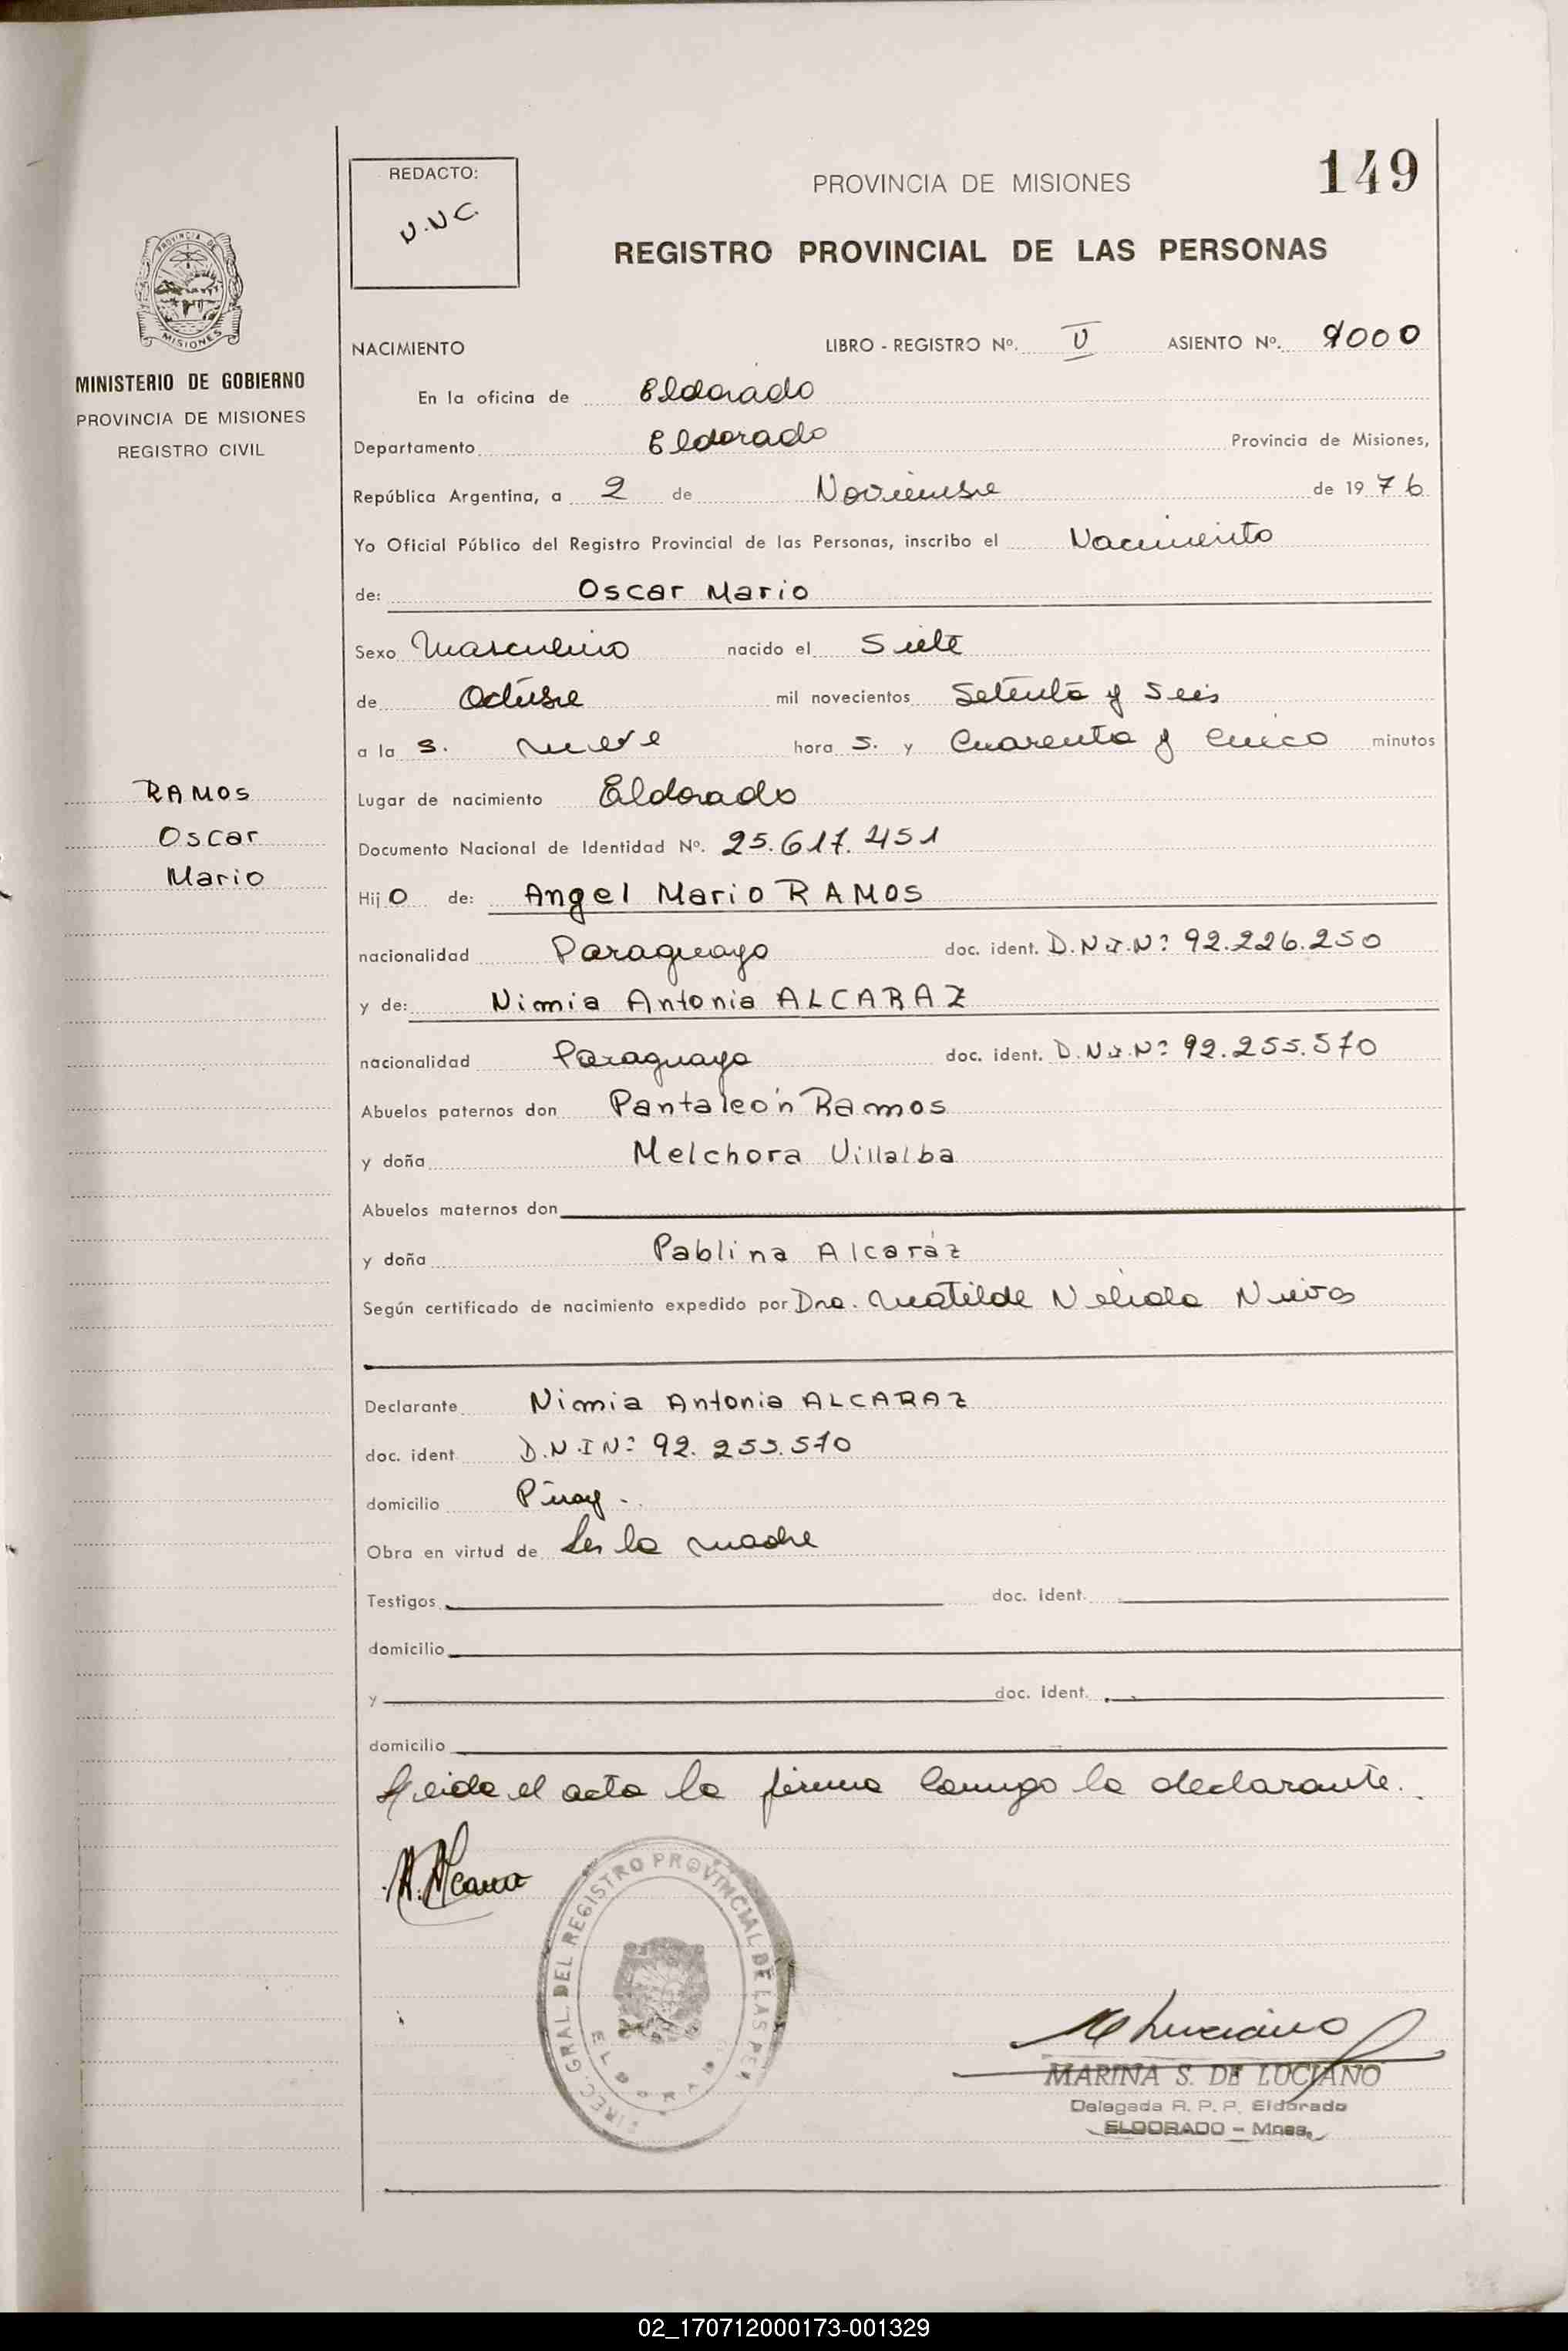 149
REDACTO:
N.N.C.
PROVINCIA DE MISIONES
REGISTRO PROVINCIAL DE LAS PERSONAS
PROVINCIA DE MISIONES
MINISTERIO DE GOBIERNO
PROVINCIA DE MISIONES
REGISTRO CIVIL
NACIMIENTO LIBRO - REGISTRO Nº. V ASIENTO Nº. 1000
En la oficina de Eldorado
Departamento Eldorado Provincia de Misiones,
República Argentina, a 2 de Noviembre de 19 76
Yo Oficial Público del Registro Provincial de las Personas, inscribo el Nacimiento
de: Oscar Mario
Sexo Masculino nacido el Siete
de Octubre mil novecientos Setenta y Seis
a la s. nueve hora s. y Cuarenta y Cinco minutos
RAMOS
Oscar
Mario
Lugar de nacimiento Eldorado
Documento Nacional de Identidad Nº. 25.617.451
Hij o de: Angel Mario RAMOS
nacionalidad Paraguaya doc. ident. D.N.I.Nº 92.226.250
y de: Nimia Antonia ALCARAZ
nacionalidad Paraguaya doc. ident. D.N.I.Nº 92.255.570
Abuelos paternos don Pantaleón Ramos
y doña Melchora Villalba
Abuelos maternos don
y doña Pablina Alcaráz
Según certificado de nacimiento expedido por Dra. Matilde Nelida
Declarante Nimia Antonia ALCARAZ
doc. ident. D.N.I Nº 92.255.570
domicilio Piray.
Obra en virtud de Ser la madre
Testigos doc. ident.
domicilio
y doc. ident.
domicilio
Leida el acta la firma conmigo la declarante.
DIREC. GRAL. DEL REGISTRO PROVINCIAL DE LAS PER.
ELDORADO
MARINA S. DE LUCIANO
Delegada R. P. P. Eldorado
ELDORADO - Mnes.
02_170712000173-001329